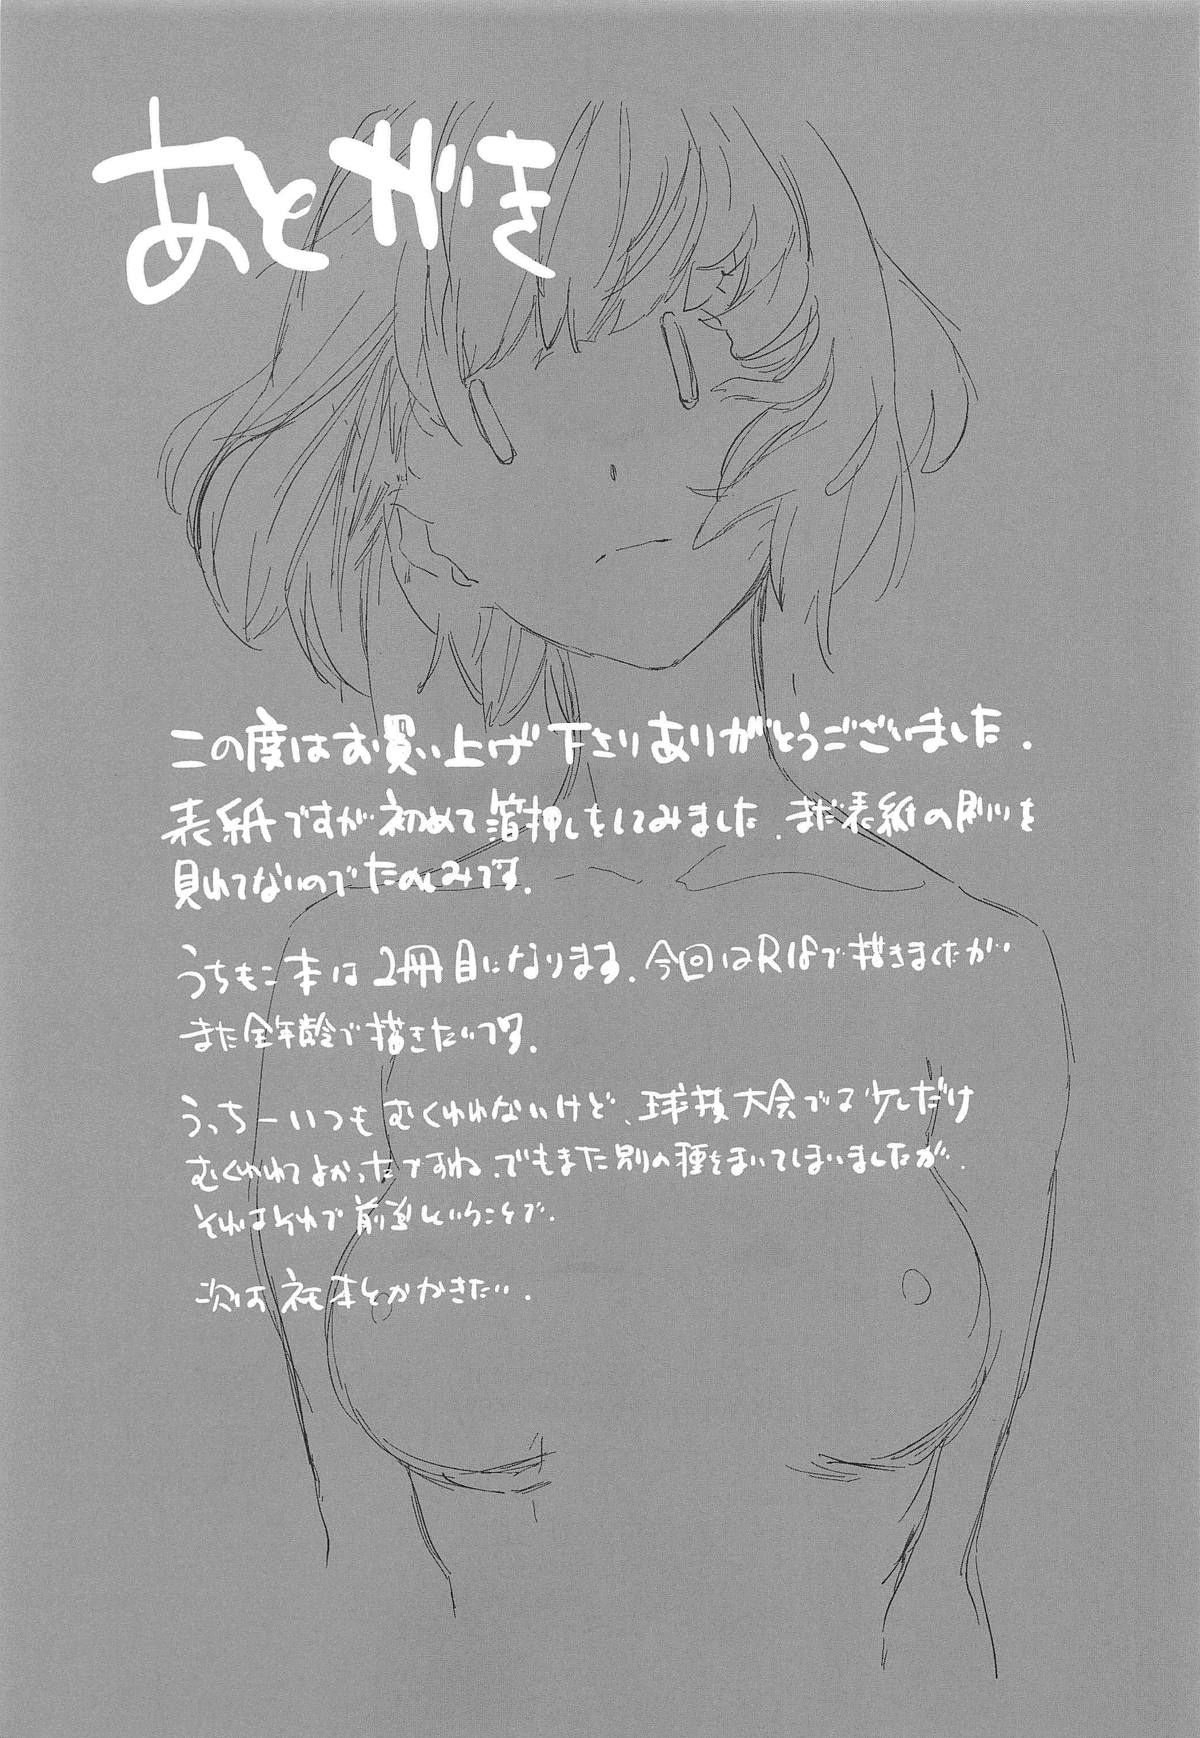 あとがき
この度はお買い上げ下さりありがとうございました.
表紙ですが初めて箔押しをしてみました.まだ表紙の刷りを
見れてないのでたのしみです.
うちもこ本は2冊目になります.今回はR18で描きましたが
また全年齢で描きたいです.
うっちーいつもむくわれないけど、球技大会でる少しだけ
むくわれてよかったですね.でもまた別の種をまいてしまいましたが.
それはそれで前途ということで.
次はネモ本とかかきたい.